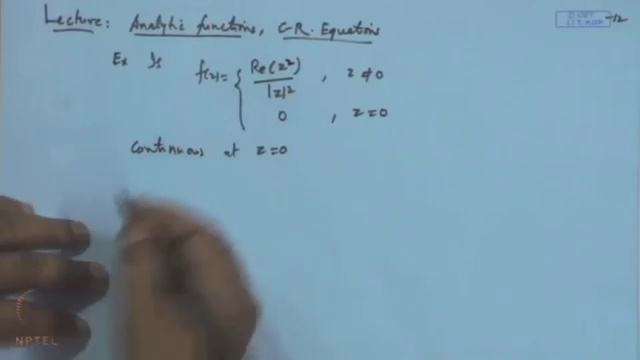 Lecture: Analytic functions, C-R. Equations
Ex Is f(z) = { Re(z²) / |z|² , z ≠ 0
0 , z=0
Continuous at z=0
NPTEL